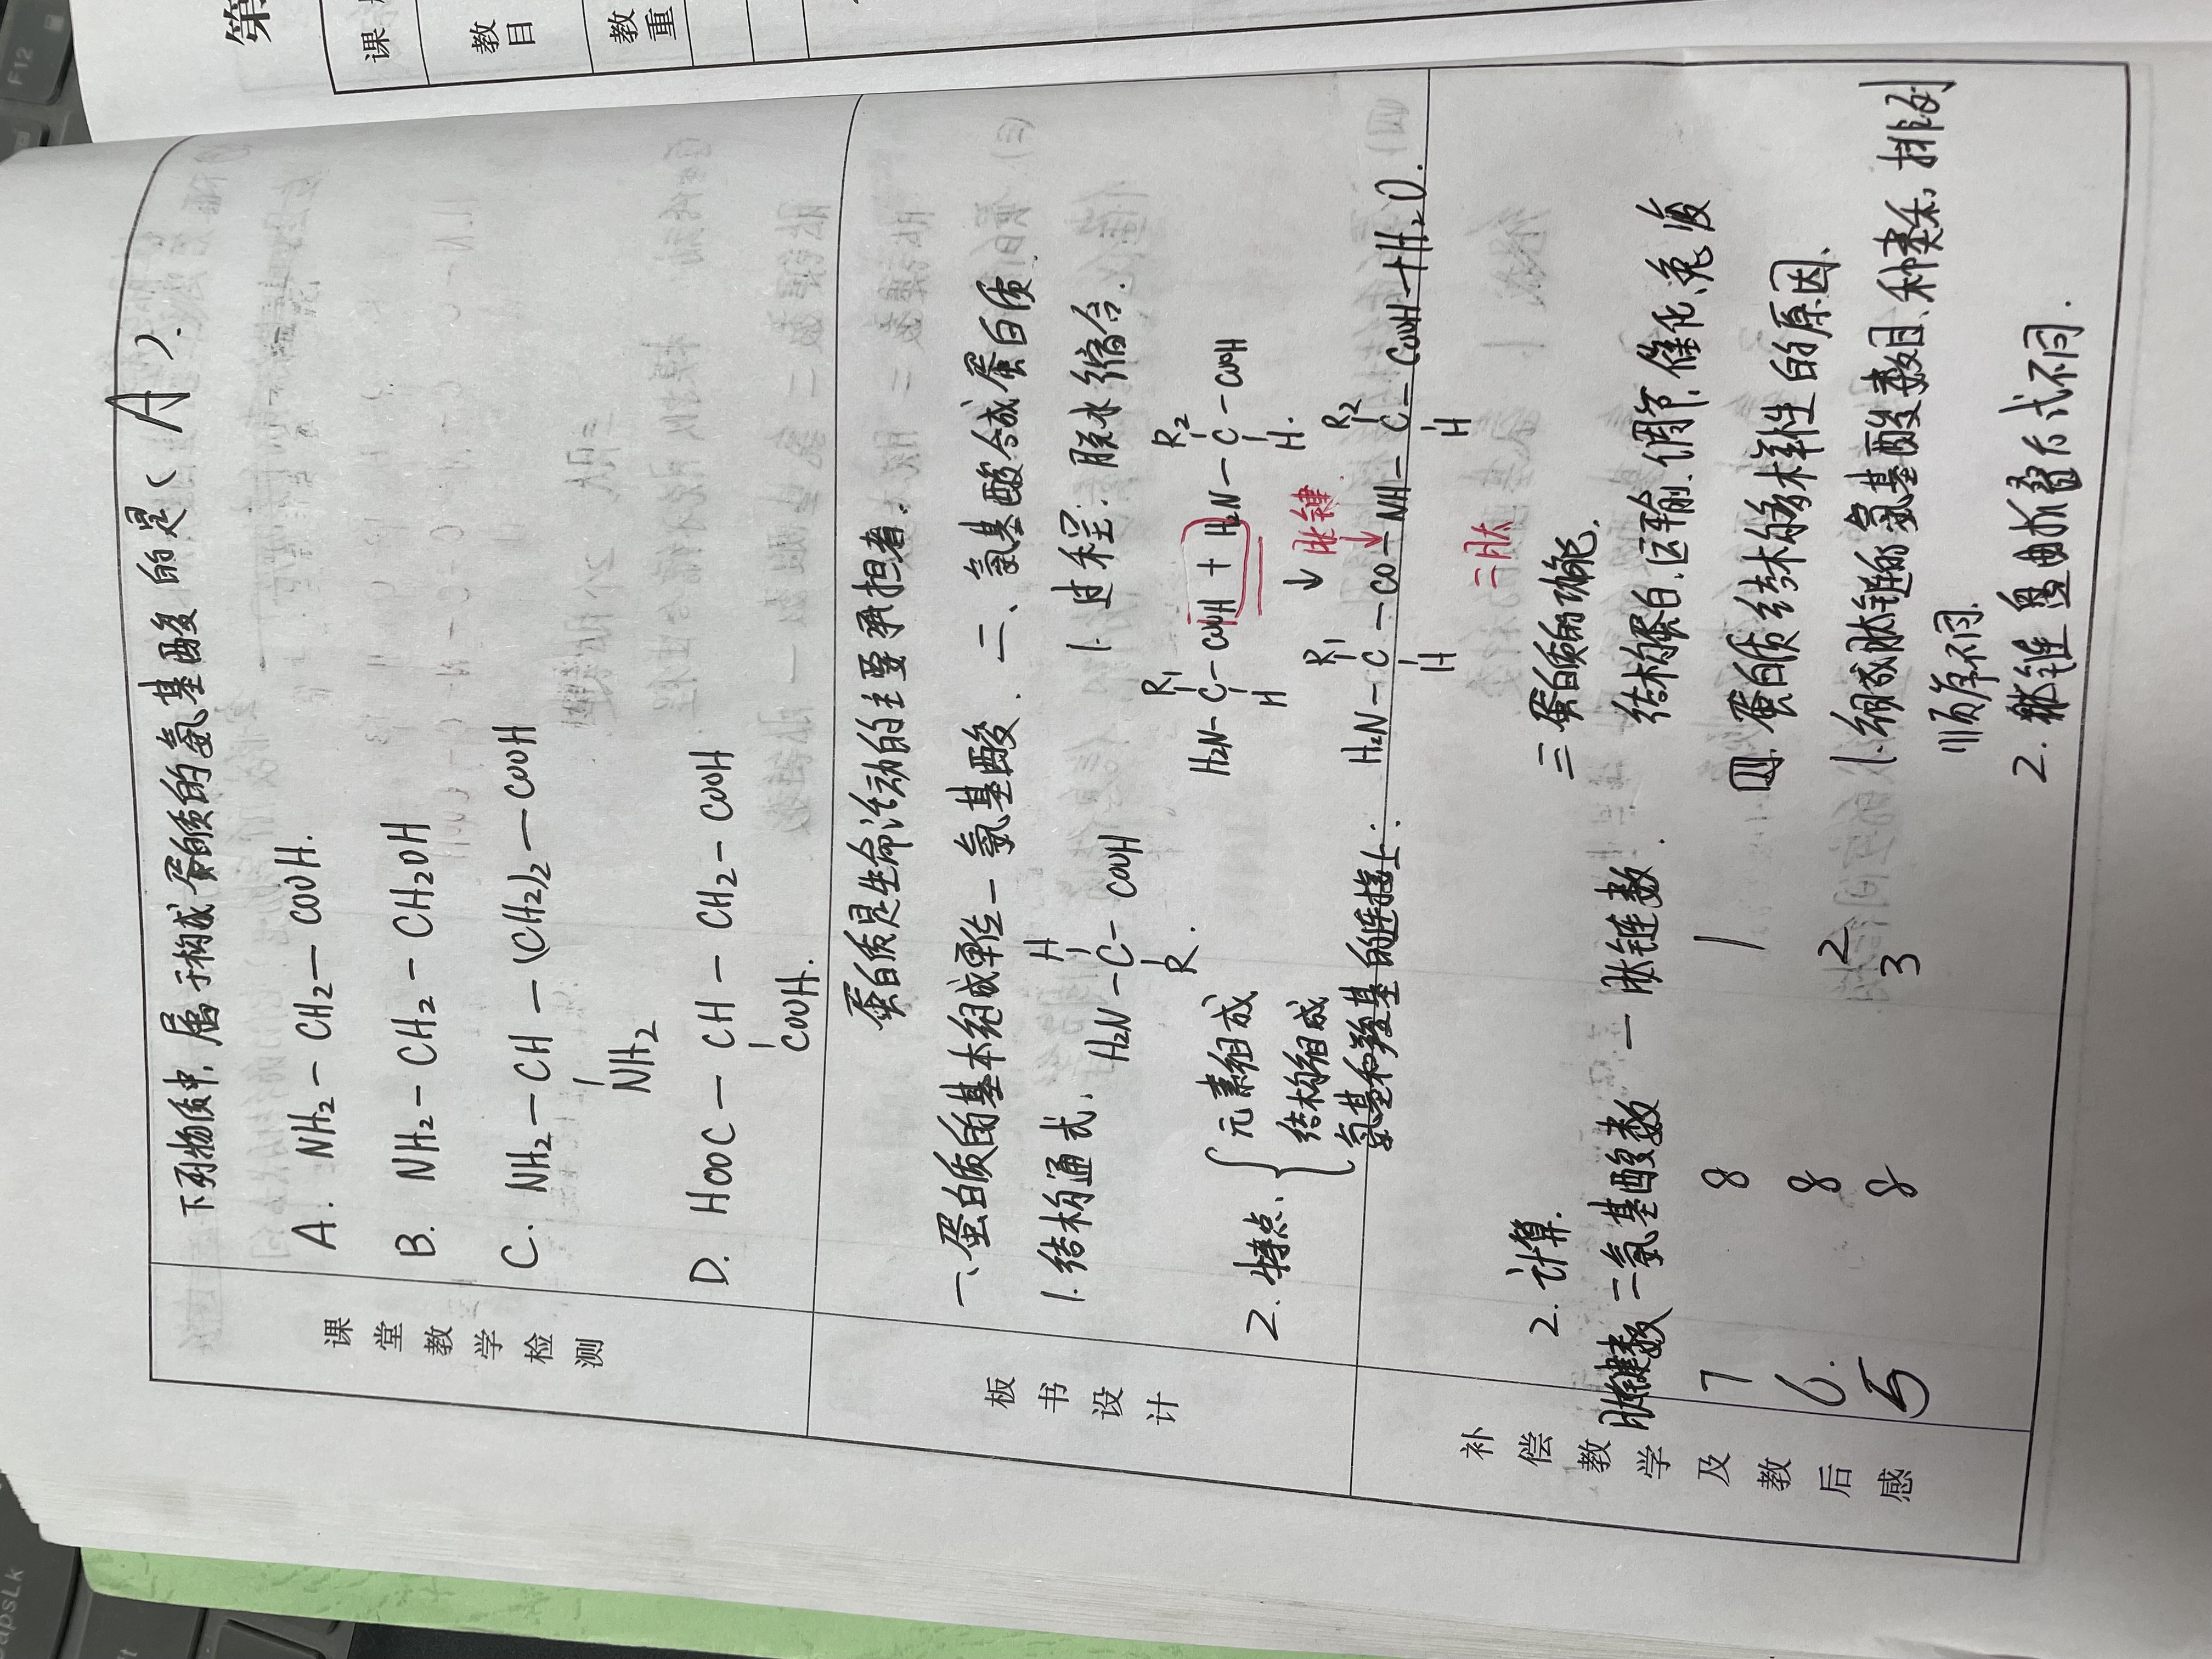 第
课
教
目
教
重
课堂教学检测
下列物质中,属于构成蛋白质的氨基酸的是( A ).
A. NH₂－CH₂－COOH.
B. NH₂－CH₂－CH₂OH
C. NH₂－CH－(CH₂)₂－COOH
NH₂
D. HOOC－CH－CH₂－COOH
COOH.
板书设计
蛋白质是生命活动的主要承担者.
一、蛋白质的基本组成单位－氨基酸.
1.结构通式.
H
H₂N－C－COOH
R.
2.特点.
元素组成
结构组成
氨基和羧基的连接上.
二、氨基酸合成蛋白质.
1. 过程:脱水缩合.
R₁ R₂
H₂N－C－COOH + H₂N－C－COOH
H H.
↓ 肽键
R₁ R₂
H₂N－C－CO－NH－C－COOH+H₂O.
H H
二肽
补偿教学及教后感
2.计算.
肽键数=氨基酸数－肽链数.
7 8 1
6. 8 2
5 8 3
三 蛋白质的功能.
结构蛋白、运输、调节、催化、免疫
四 蛋白质结构多样性的原因.
1.组成肽链的氨基酸数目、种类、排列
顺序不同.
2. 肽链盘曲折叠方式不同.
F12
apsLk